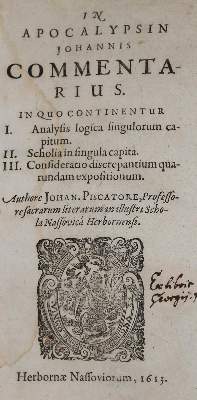 IN
APOCALYPSIN
JOHANNIS
COMMENTA-
RIUS.
IN QUO CONTINENTUR
I. Analysis logica singulorum ca-
pitum.
II. Scholia in singula capita.
III. Consideratio discrepantium qua-
rundam expositionum.
Authore JOHAN. PISCATORE, Professo-
re sacrarum literarum in illustri Scho-
la Nassovicâ Herbornense.
Ex libris
Georgii
Herbornæ Nassoviorum, 1613.